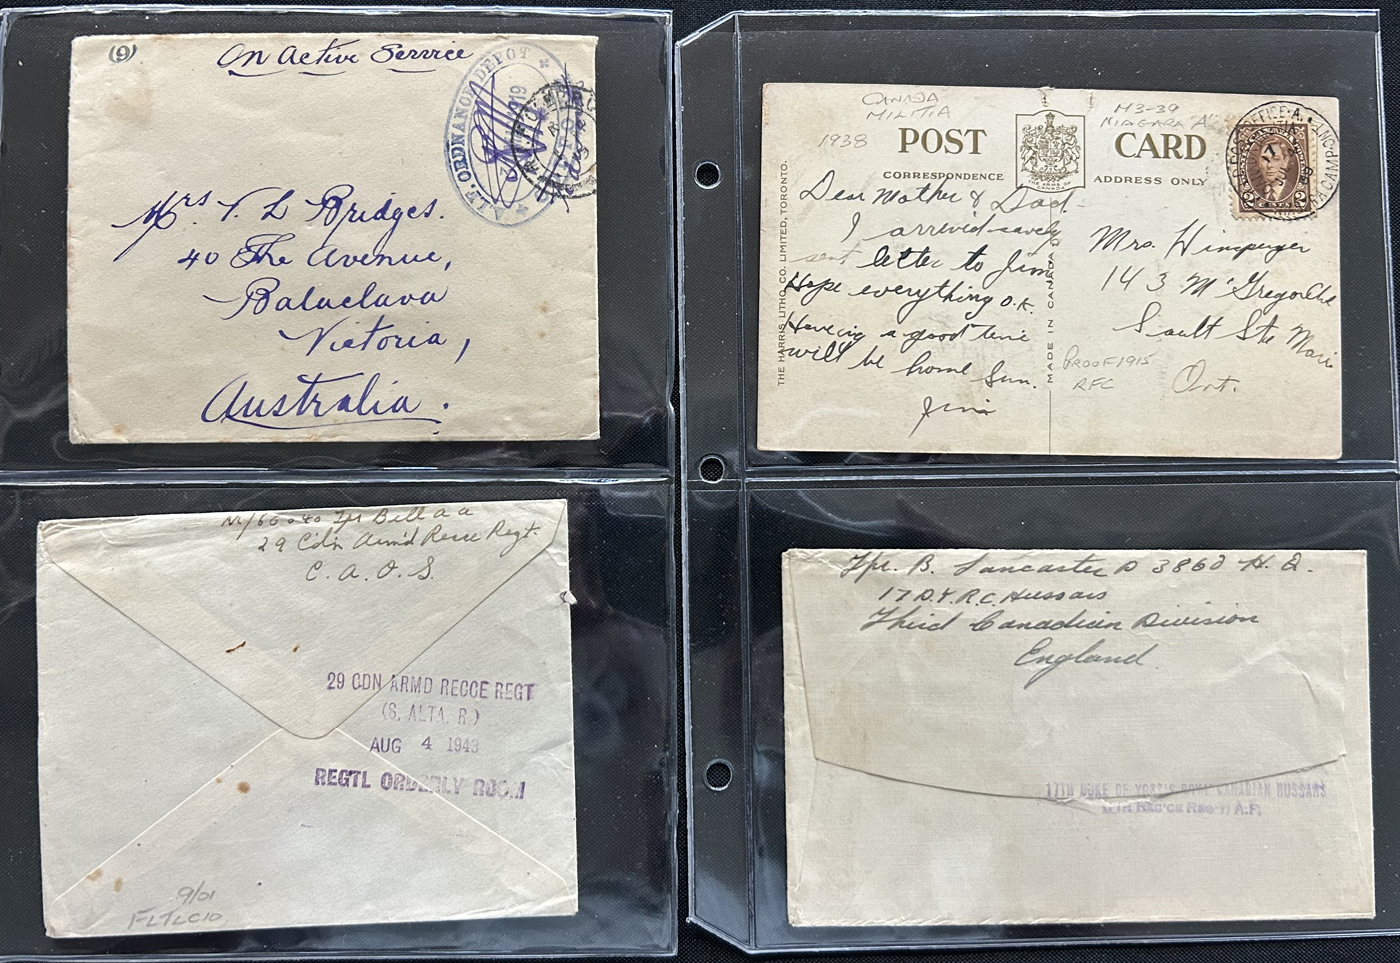 (9)
On Active Service
ORDNANCE DEPOT
19
Mrs V. L Bridges.
40 The Avenue,
Balaclava
Victoria,
Australia.
CANADA
MILITIA
1938
M3-39
NIAGARA "A"
POST CARD
CORRESPONDENCE
ADDRESS ONLY
THE ARMS OF
CANADA
2 CENTS 2
THE HARRIS LITHO. CO. LIMITED, TORONTO.
MADE IN CANADA
Dear Mother & Dad.
I arrived safely
sent letter to Jim
Hope everything O.K.
Having a good time
will be home Sun.
Jim
Mrs.
143 McGregor Ave
Sault Ste Marie
Ont.
PROOF 1915
RFC
Tpr Bell a a
29 Cdn Armd Recce Regt.
C. A. O. S.
29 CDN ARMD RECCE REGT
(S. ALTA. R.)
AUG 4 1943
REGTL ORDERLY ROOM
9/01
FLTLC10
Tpr. B. Lancaster D 3860 H.Q.
17 D.Y.R.C. Hussars
Third Canadian Division
England.
17TH DUKE OF YORK'S ROYAL CANADIAN HUSSARS
(7TH REC'CE REG'T) A.F.